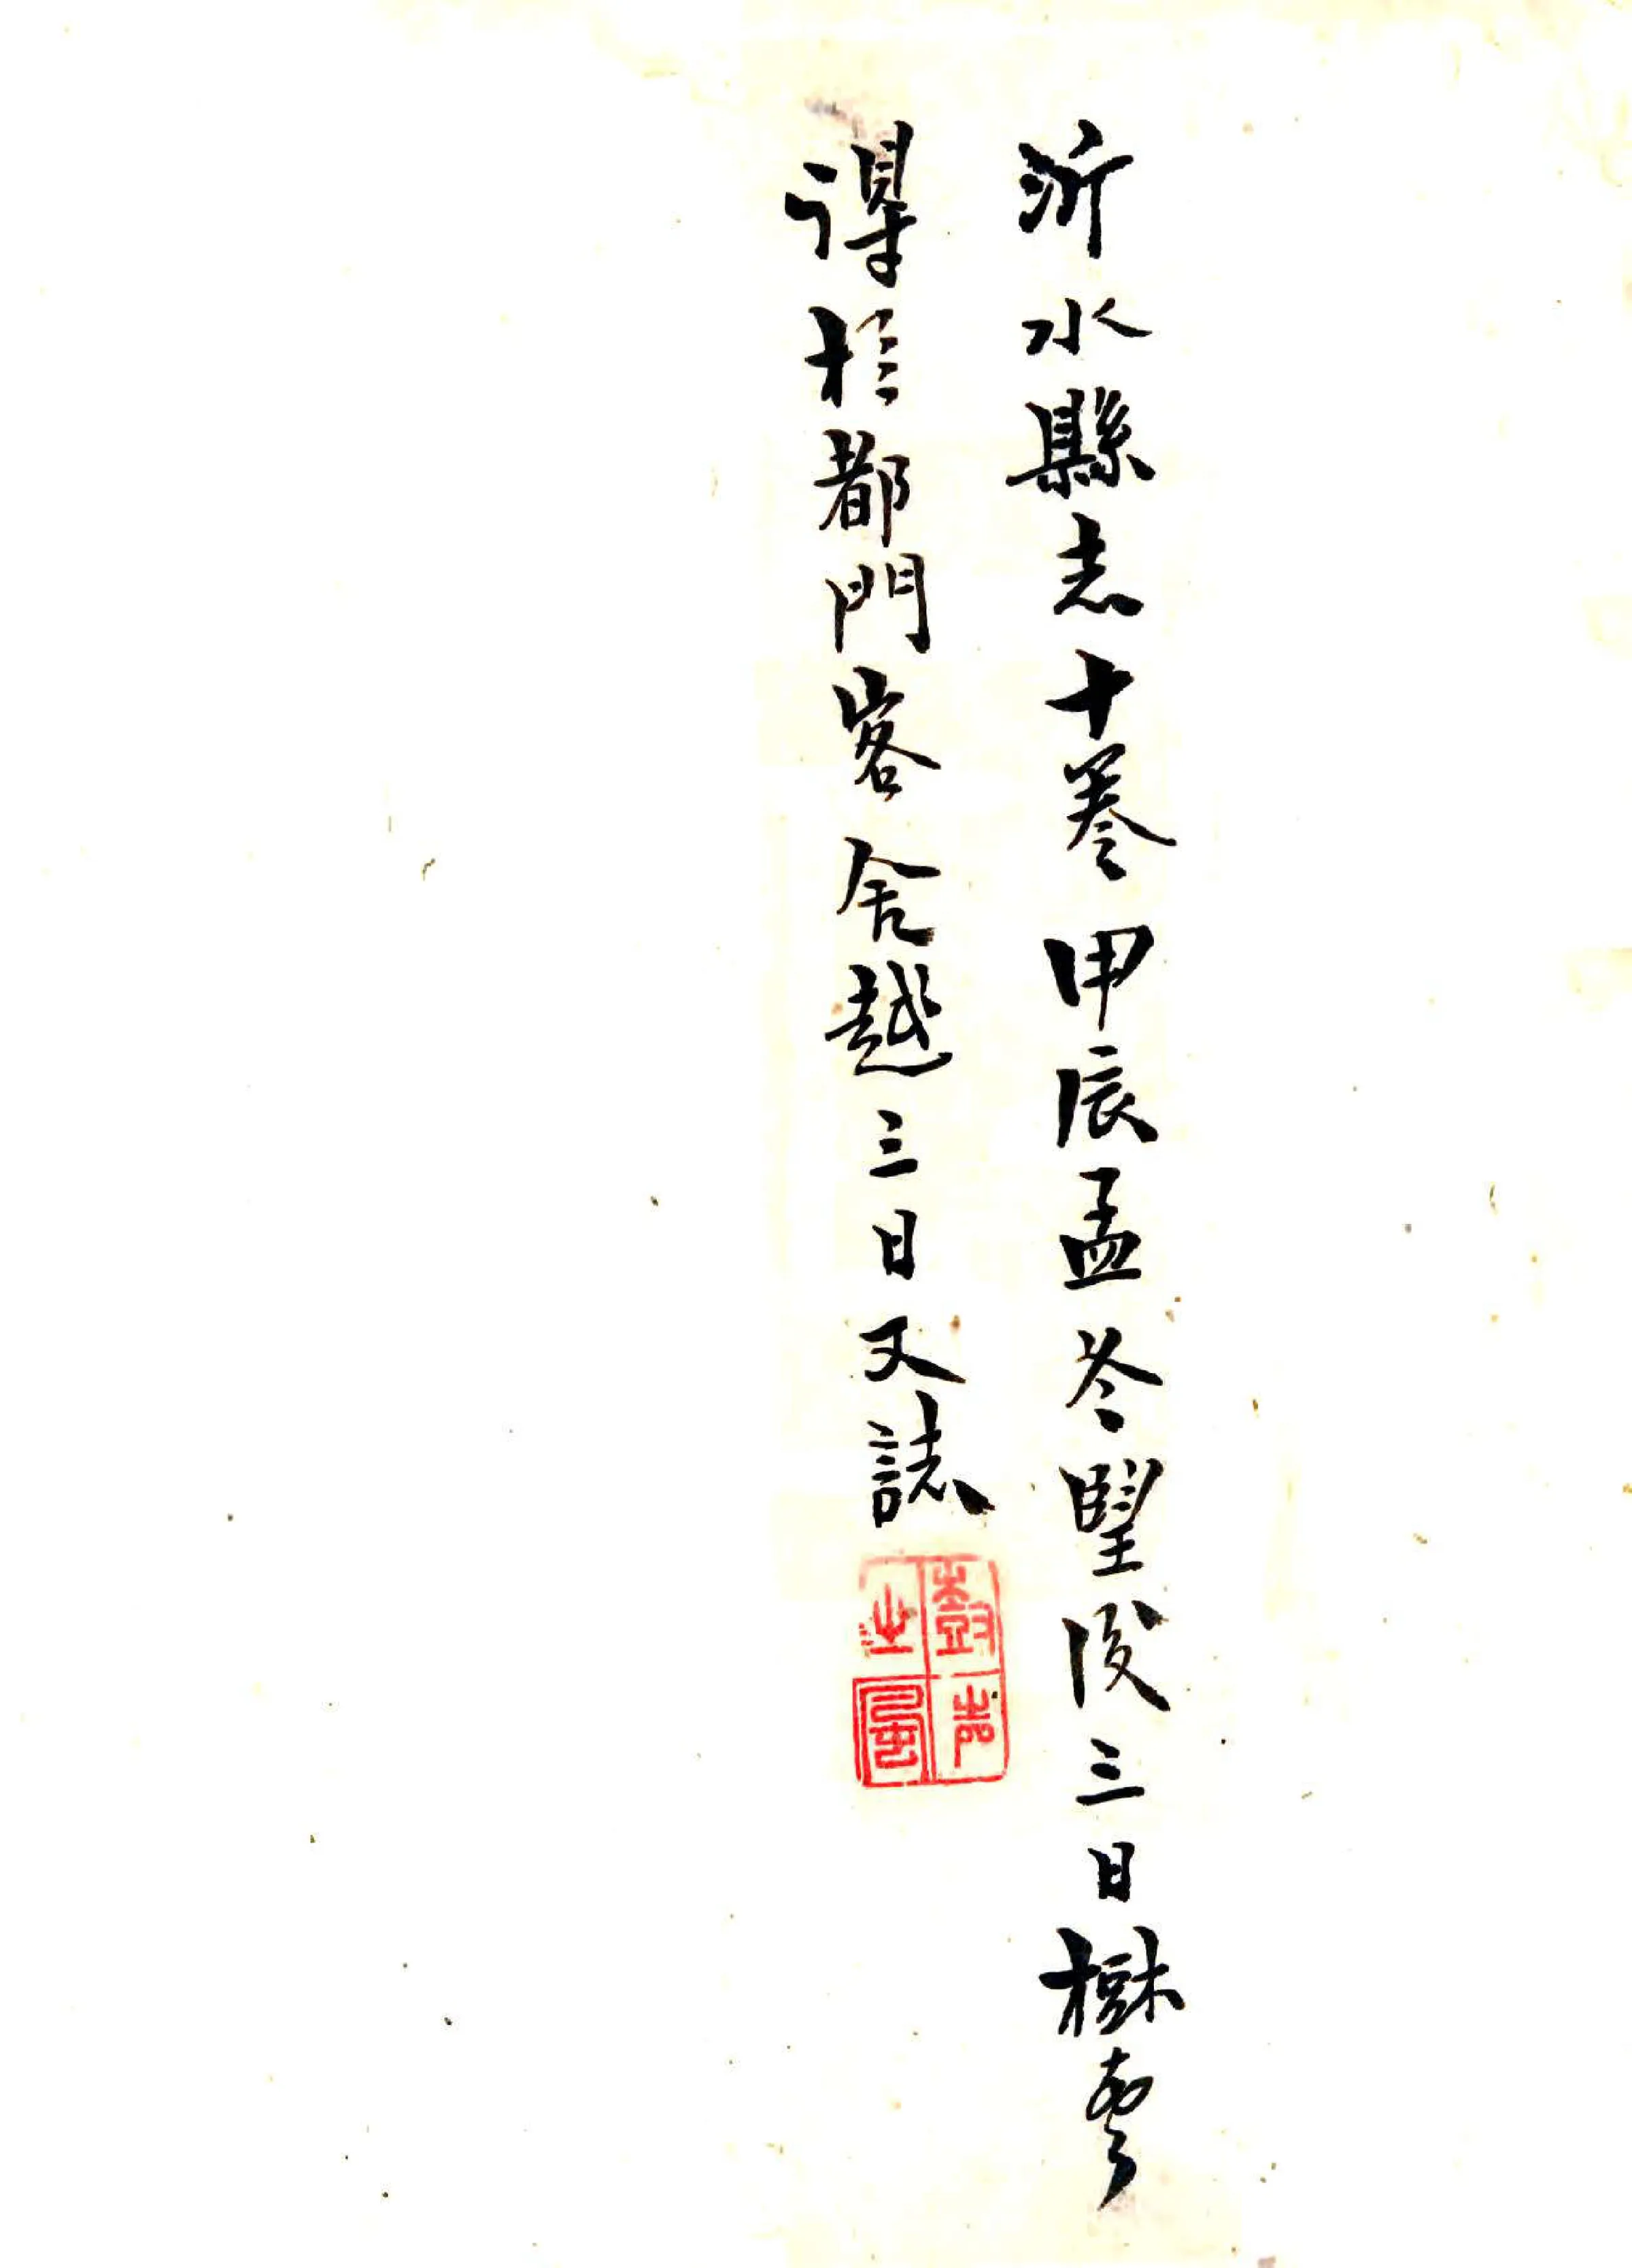 沂水縣志十卷甲辰孟冬望後三日樹
得於都門客舍越三日又誌
尌之風声